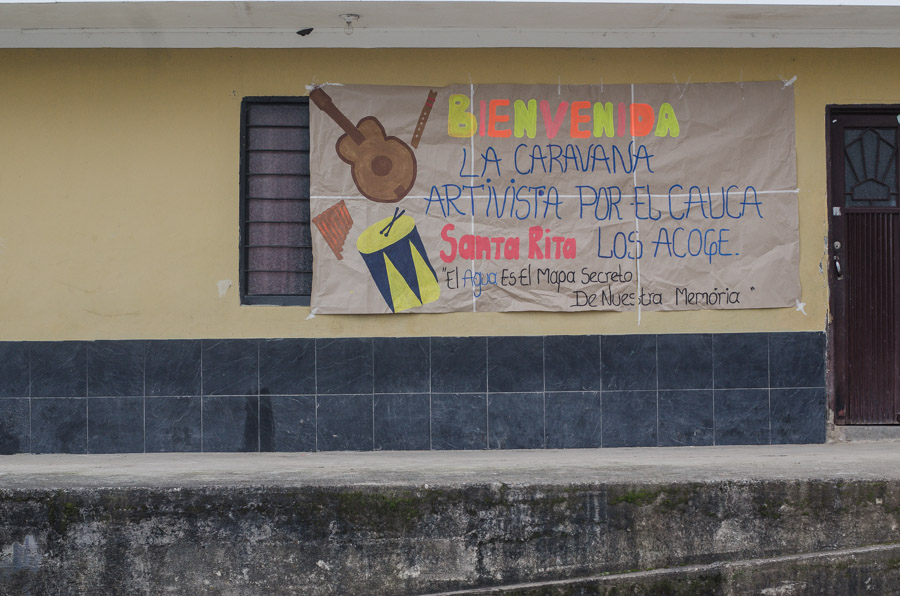 BIENVENIDA
LA CARAVANA
ARTiViStA POR EL CAUCA
Santa Rita LOS ACOGE.
"El Agua Es El Mapa Secreto
De Nuestra Memória"